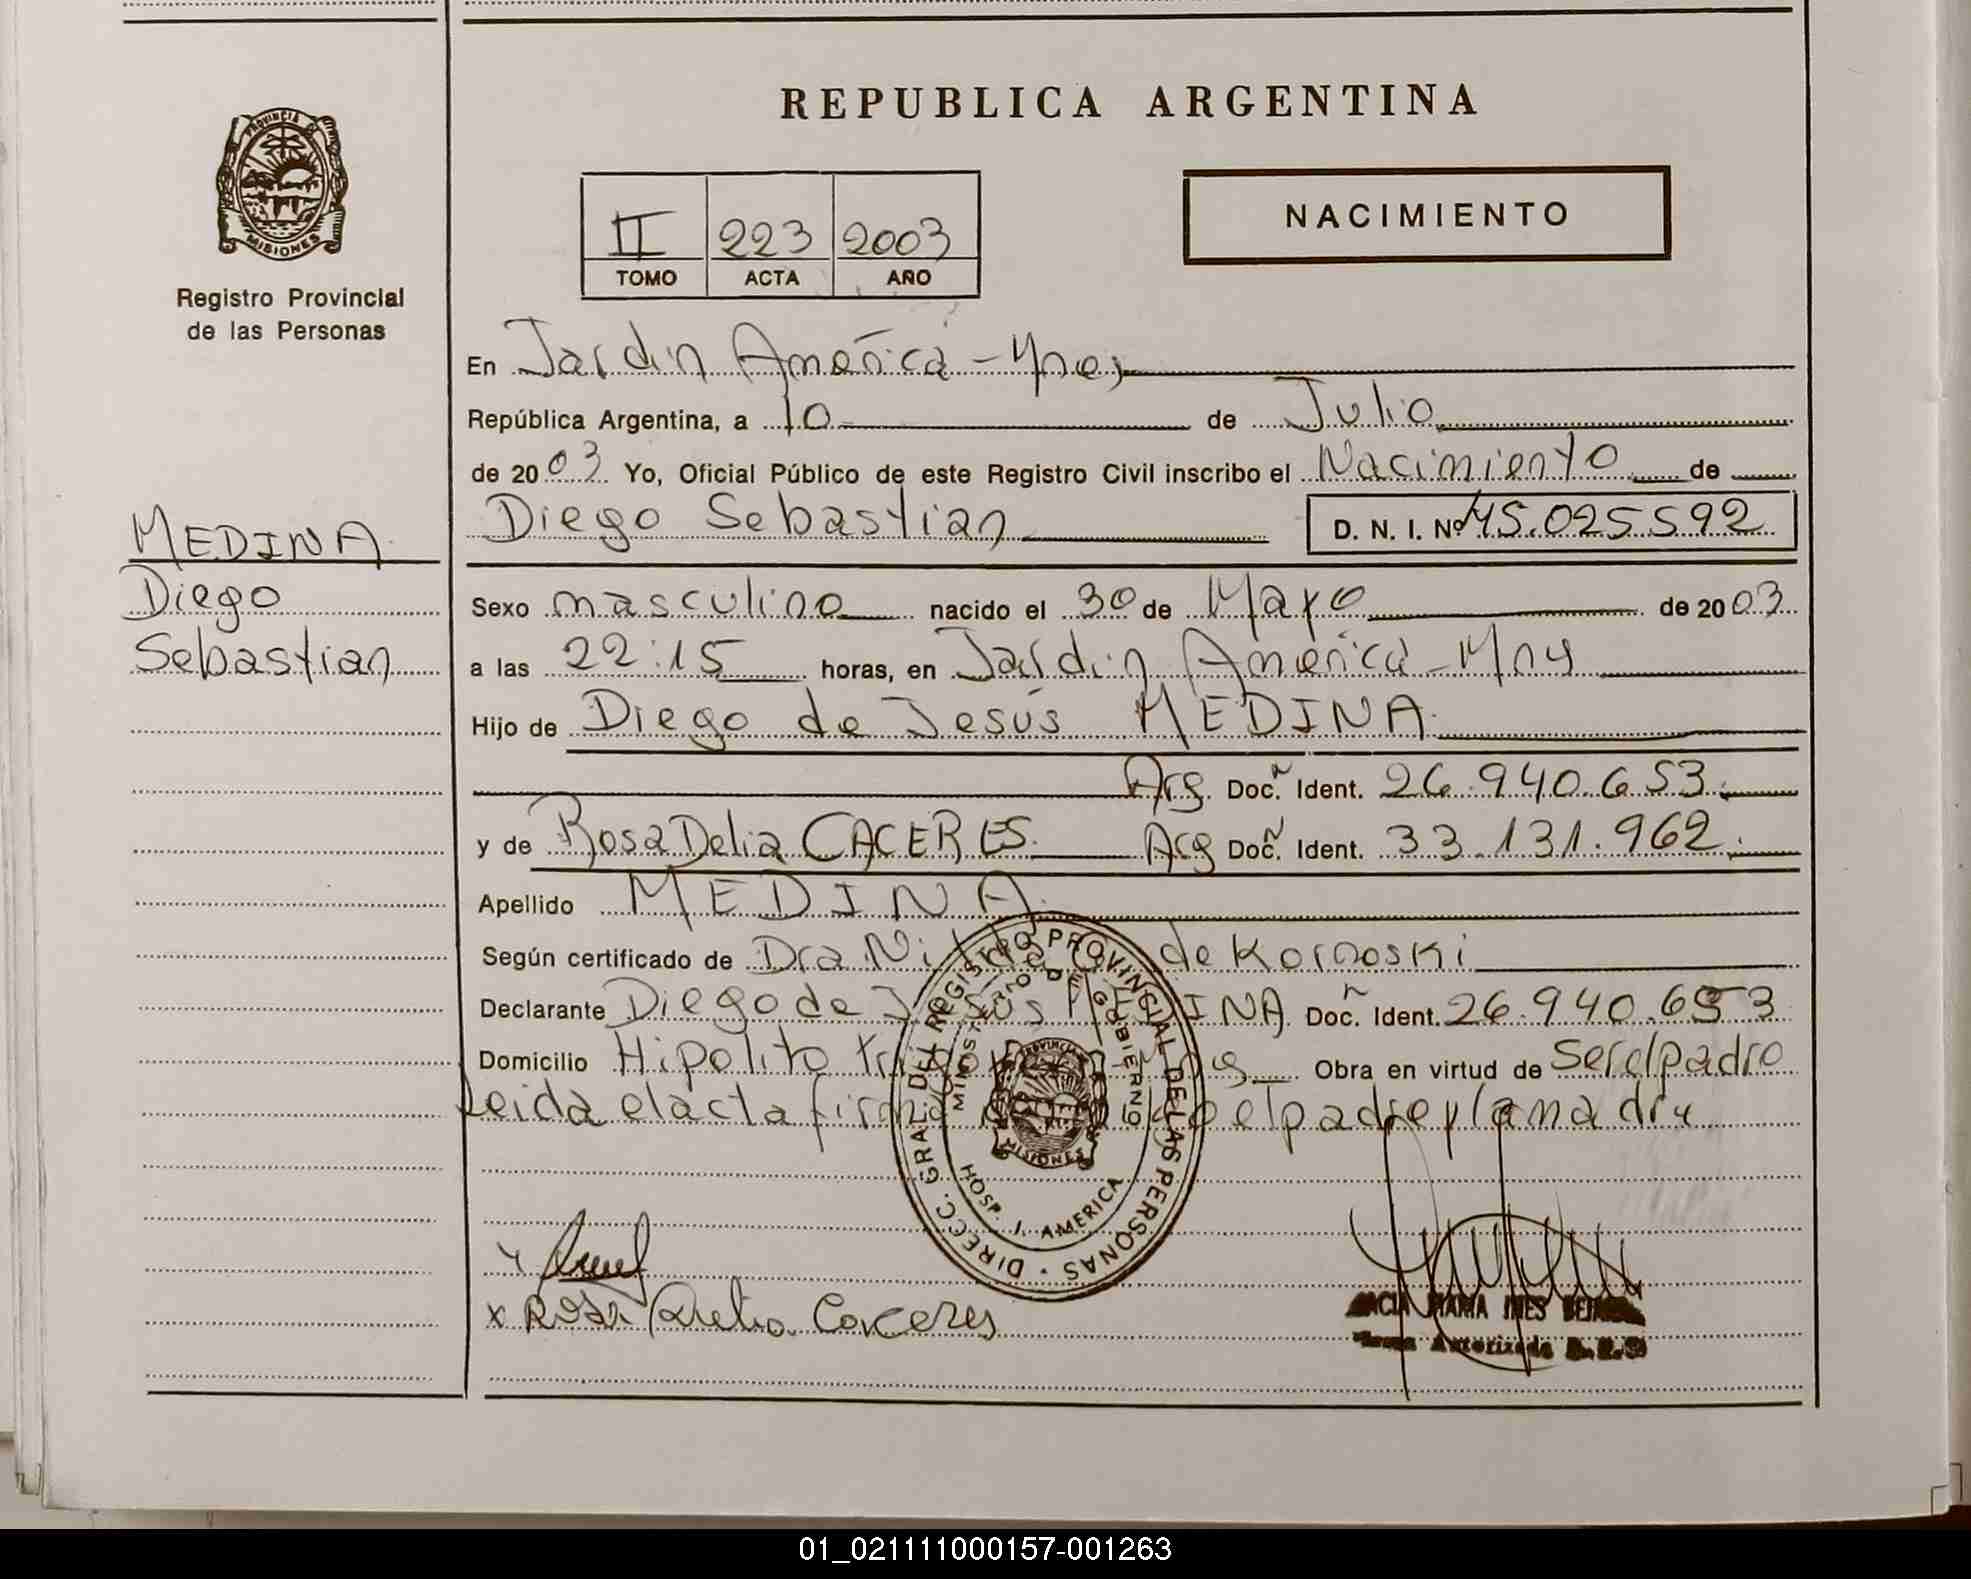 REPUBLICA ARGENTINA
PROVINCIA DE
MISIONES
Registro Provincial
de las Personas
II 223 2003
TOMO ACTA AÑO
NACIMIENTO
MEDINA
Diego
Sebastian
En Jardin América - Mnes
República Argentina, a 10 de Julio
de 2003 Yo, Oficial Público de este Registro Civil inscribo el Nacimiento de
Diego Sebastian D. N. I. Nº 45.025.592
Sexo masculino nacido el 30 de Mayo de 2003
a las 22:15 horas, en Jardin América - Mns
Hijo de Diego de Jesús MEDINA
Arg. Doc.ñ Ident. 26.940.653
y de Rosa Delia CACERES Arg Doc.ñ Ident. 33.131.962
Apellido MEDINA
Según certificado de Dra de Kornoski
Declarante Diego de Jesús MEDINA Doc.ñ Ident. 26.940.653
Domicilio Hipolito Obra en virtud de Ser el padre
Leida el acta el padre y la madre
DIRECC. GRAL. DEL REGISTRO PROVINCIAL DE LAS PERSONAS
GOBIERNO
PROVINCIA
MISIONES
HOSP. J. AMERICA
x Rosa Delia Caceres
MARIA INES
Autorizada
01_021111000157-001263